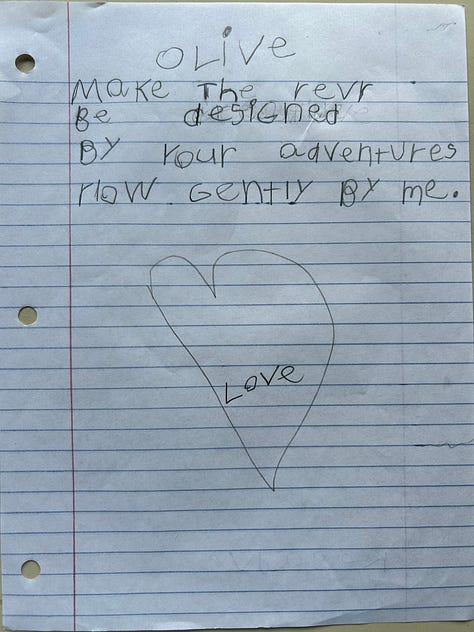 OLIVE
Make The revr
Be designed
By Your adventures
flow Gently By me.
Love